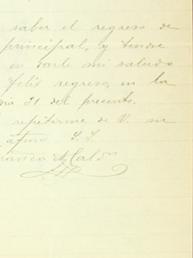 saber el regreso de
principal, y tendré
en
mi saludo
feliz regreso, en la
21 del presente.
repetirme de V. su
afmo. S. S.